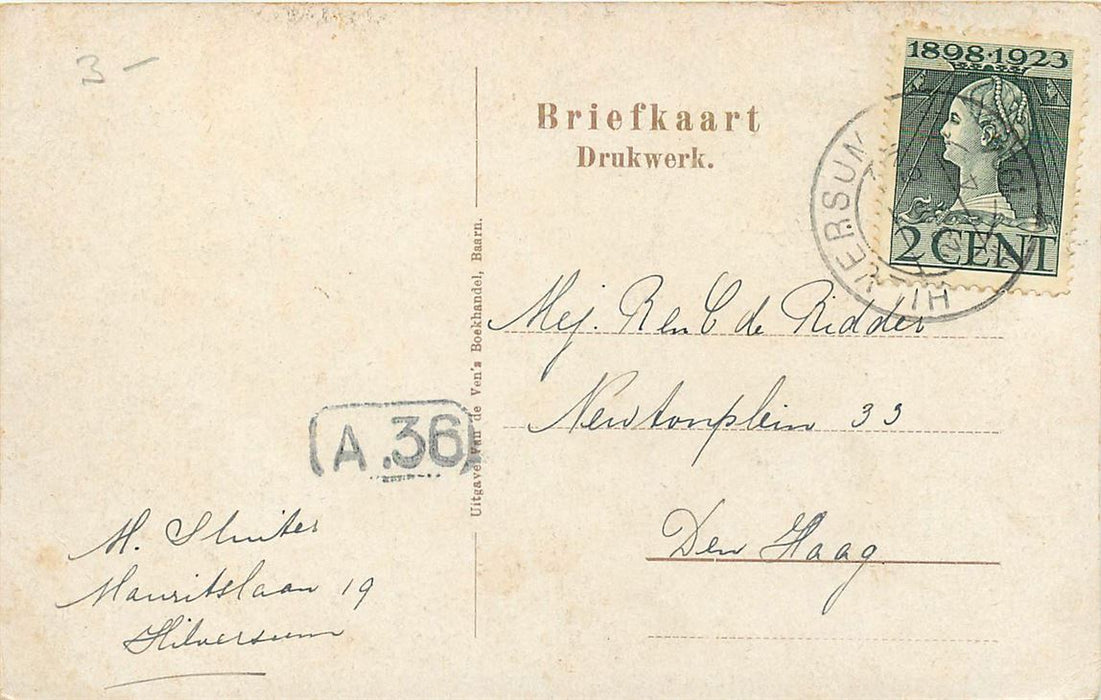 3 –
Briefkaart
Drukwerk.
1898·1923
2 CENT
HILVERSUM
Uitgave van de Ven's Boekhandel, Baarn.
Mej. Ren C de Ridder
Newtonplein 33
Den Haag
A.36
M. Sluiter
Mauritslaan 19
Hilversum